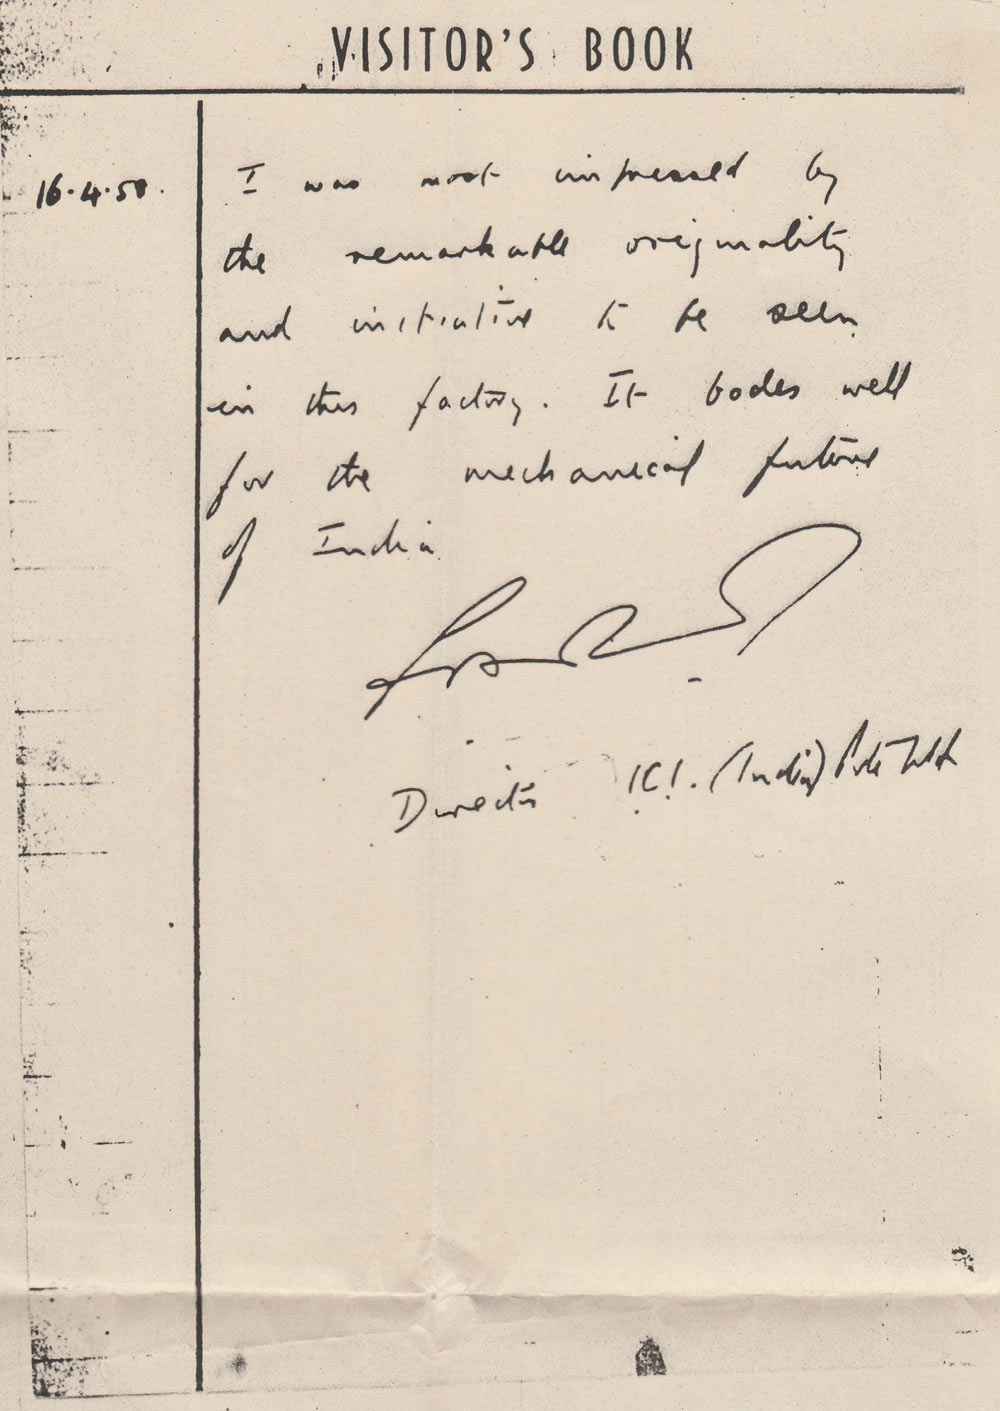 VISITOR'S BOOK
16.4.50.
I was most impressed by
the remarkable originality
and initiative to be seen
in this factory. It bodes well
for the mechanical future
of India
Director ICI. (India) Private Ltd